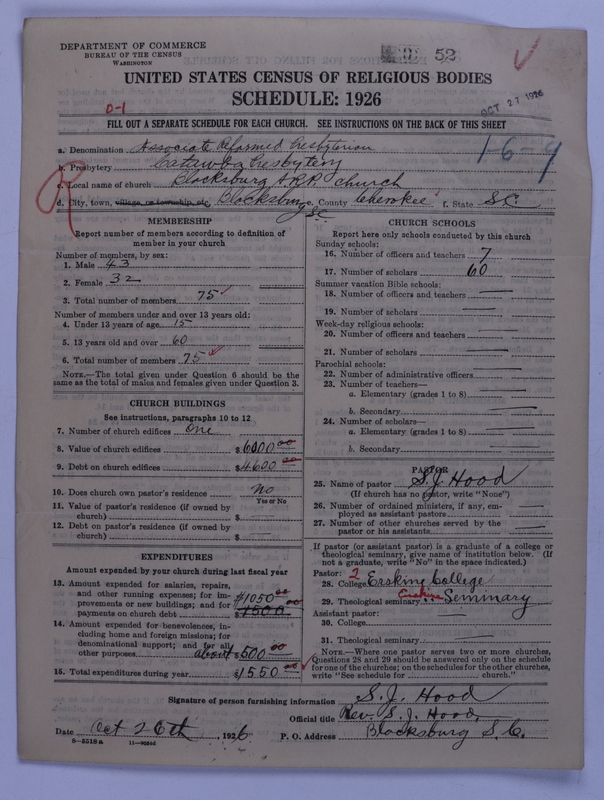 DEPARTMENT OF COMMERCE
BUREAU OF THE CENSUS
WASHINGTON
52
UNITED STATES CENSUS OF RELIGIOUS BODIES
SCHEDULE: 1926
D-1
OCT 27 1926
FILL OUT A SEPARATE SCHEDULE FOR EACH CHURCH. SEE INSTRUCTIONS ON THE BACK OF THIS SHEET
1-6-4
a. Denomination Associate Reformed Presbyterian
b. Presbytery Catawba Presbytery
c. Local name of church Blacksburg A.R.P. church
d. City, town, village, or township, etc. Blacksburg S.C. e. County Cherokee f. State S.C.
R
MEMBERSHIP
Report number of members according to definition of member in your church
Number of members, by sex:
1. Male 43
2. Female 32
3. Total number of members 75
Number of members under and over 13 years old:
4. Under 13 years of age 15
5. 13 years old and over 60
6. Total number of members 75
NOTE.—The total given under Question 6 should be the same as the total of males and females given under Question 3.
CHURCH BUILDINGS
See instructions, paragraphs 10 to 12
7. Number of church edifices one
8. Value of church edifices $6000 00
9. Debt on church edifices $4600 00
10. Does church own pastor's residence No
Yes or No
11. Value of pastor's residence (if owned by church) $
12. Debt on pastor's residence (if owned by church) $
EXPENDITURES
Amount expended by your church during last fiscal year
13. Amount expended for salaries, repairs, and other running expenses; for improvements or new buildings; and for payments on church debt $1050 00
$1500
14. Amount expended for benevolences, including home and foreign missions; for denominational support; and for all other purposes about $500 00
15. Total expenditures during year $1550 00
CHURCH SCHOOLS
Report here only schools conducted by this church
Sunday schools:
16. Number of officers and teachers 7
17. Number of scholars 60
Summer vacation Bible schools:
18. Number of officers and teachers
19. Number of scholars
Week-day religious schools:
20. Number of officers and teachers
21. Number of scholars
Parochial schools:
22. Number of administrative officers
23. Number of teachers—
a. Elementary (grades 1 to 8)
b. Secondary
24. Number of scholars—
a. Elementary (grades 1 to 8)
b. Secondary
PASTOR
25. Name of pastor S.J. Hood
(If church has no pastor, write "None")
26. Number of ordained ministers, if any, employed as assistant pastors
27. Number of other churches served by the pastor or his assistants
If pastor (or assistant pastor) is a graduate of a college or theological seminary, give name of institution below. (If not a graduate, write "No" in the space indicated.)
Pastor: 2
28. College Erskine College
29. Theological seminary Erskine Seminary
Assistant pastor:
30. College
31. Theological seminary
NOTE.—Where one pastor serves two or more churches, Questions 28 and 29 should be answered only on the schedule for one of the churches; on the schedules for the other churches, write "See schedule for church."
Signature of person furnishing information S. J. Hood
Official title Rev. S. J. Hood,
Date Oct 26th, 1926 P. O. Address Blacksburg S. C.
8-5518a 11-9056d